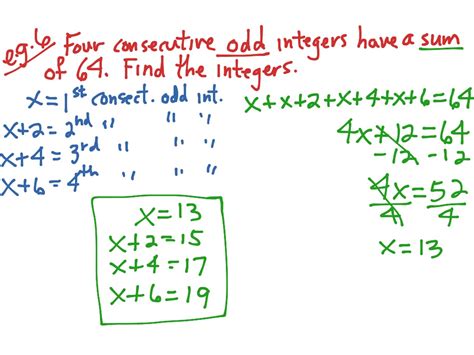 e.g.6 Four consecutive odd integers have a sum
of 64. Find the integers.
x = 1st consect. odd int.
x+2 = 2nd " " "
x+4 = 3rd " " "
x+6 = 4th " " "
x+x+2+x+4+x+6=64
4x+12=64
-12 -12
4x=52
4 4
x=13
x=13
x+2=15
x+4=17
x+6=19